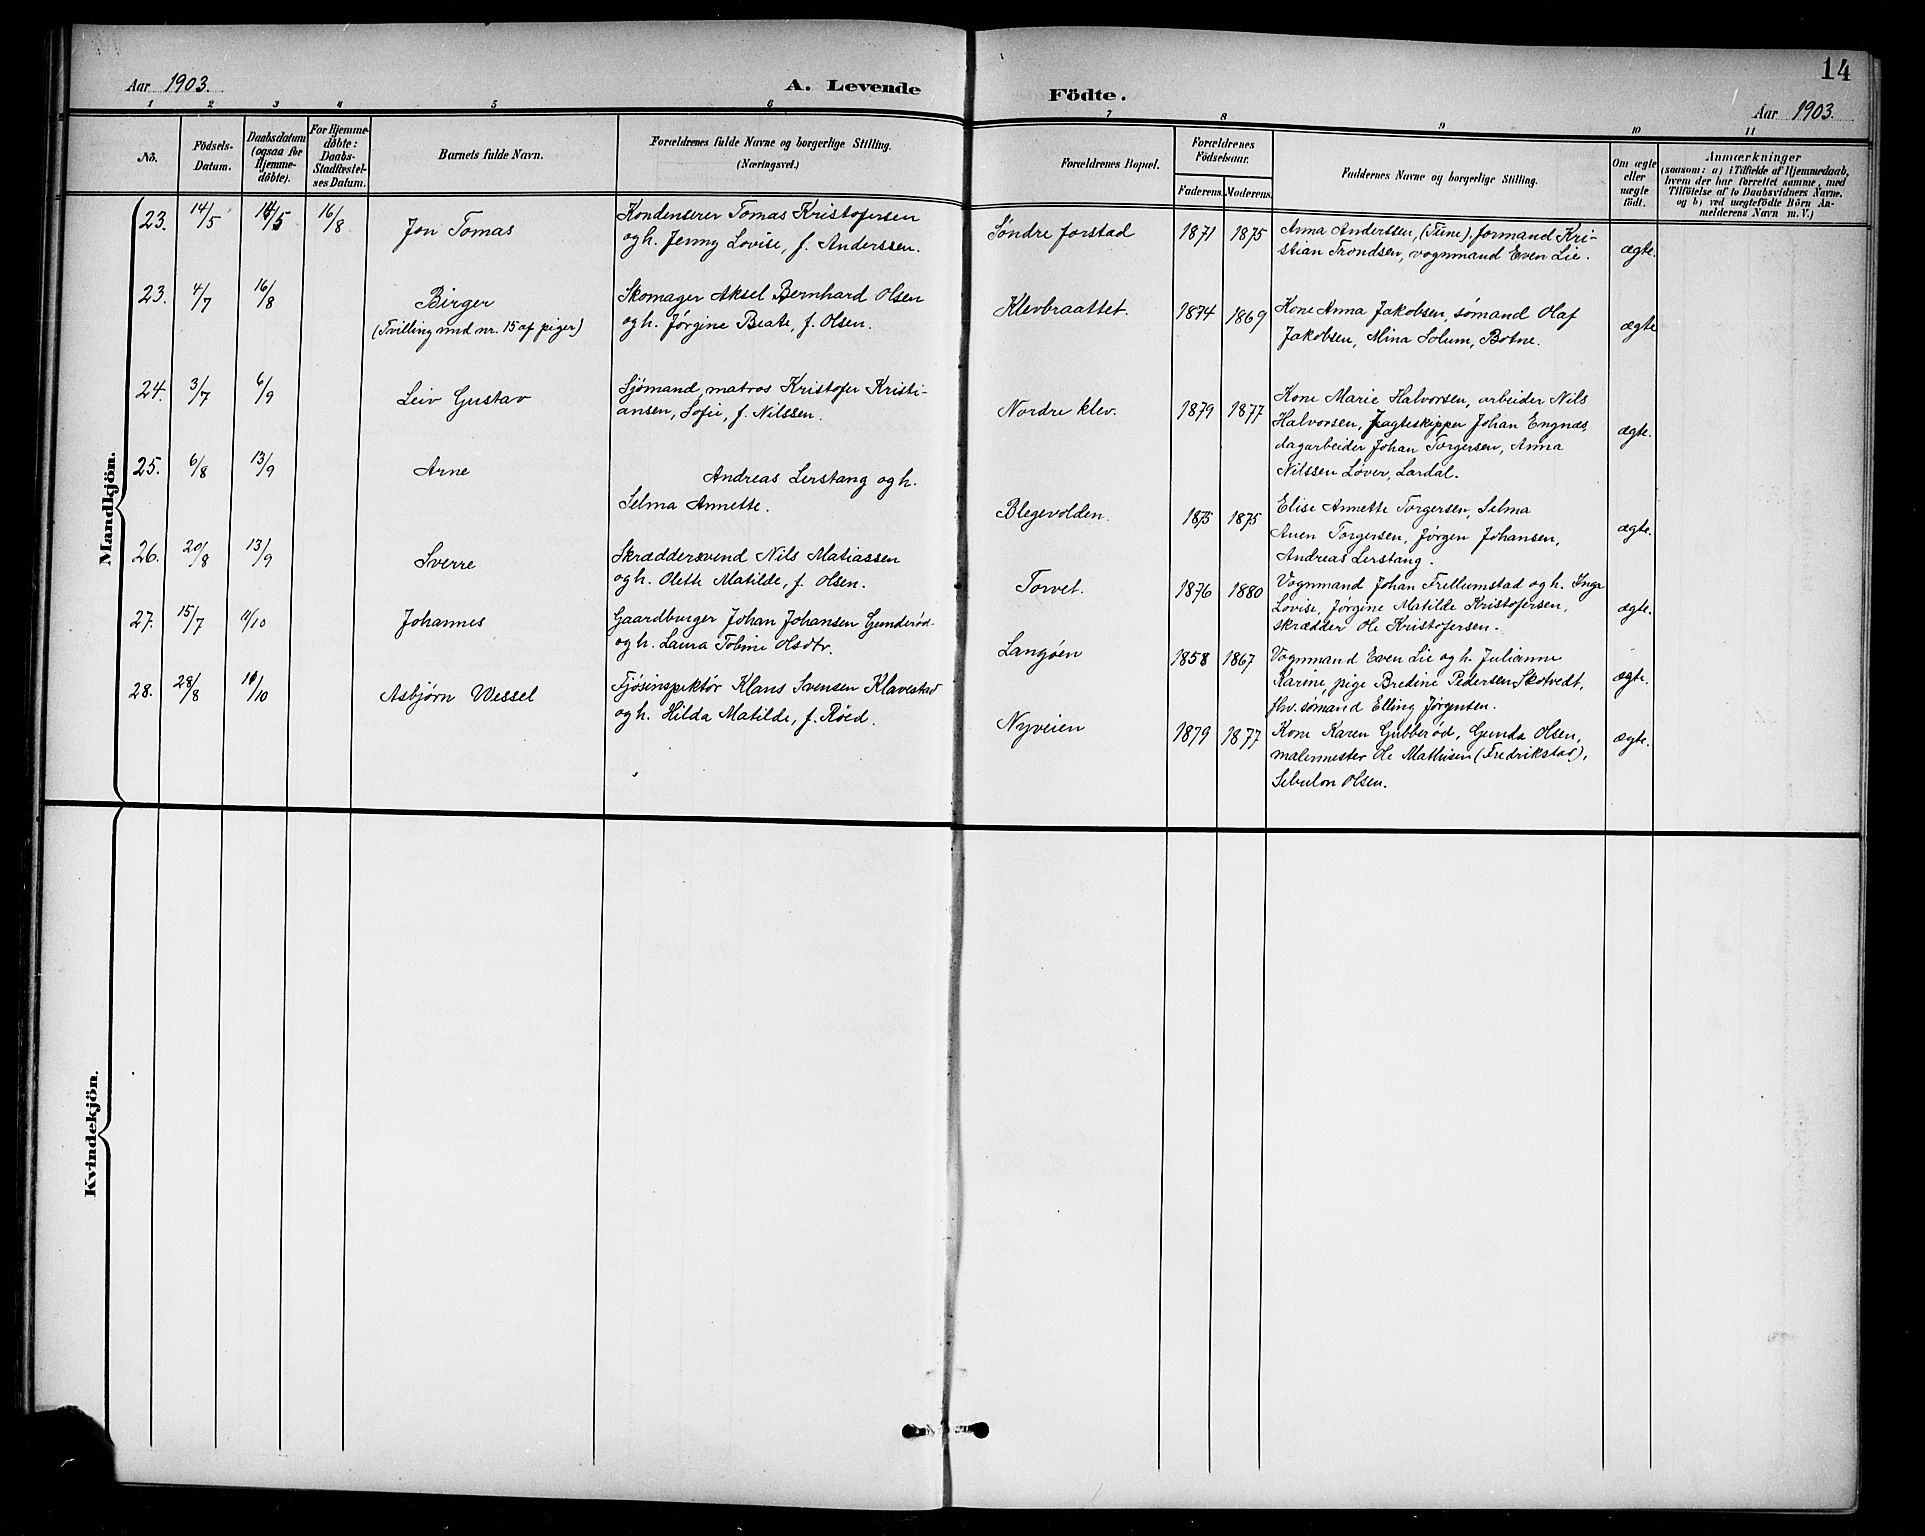 14
Aar 1903.
A. Levende Födte.
Aar 1903.
1 2 3 4 5 6 7 8 9 10 11
No.
Födsels-Datum.
Daabsdatum (ogsaa for Hjemme-döbte).
For Hjemme-döbte: Daabs-Stadfæstel-ses Datum.
Barnets fulde Navn.
Forældrenes fulde Navne og borgerlige Stilling.
(Næringsvei.)
Forældrenes Bopæl.
Forældrenes Födselsaar.
Faderens. Moderens.
Faddernes Navne og borgerlige Stilling.
Om ægte eller uægte födt.
Anmærkninger
(saasom: a) i Tilfælde af Hjemmedaab,
hvem der har forrettet samme, med
Tilföielse af to Daabsvidners Navne.
og b) ved uægtefödte Börn An-
melderens Navn m. V.)
Mandkjön.
23. 14/5 14/5 16/8 Jon Tomas
Kondenserer Tomas Kristofersen
og h. Jenny Lovise, f. Anderssen.
Søndre Jorstad 1871 1875
Anna Anderssen, (Tune), formand Kri-
stian Trondsen, vognmand Even Lie.
ægte.
23. 4/7 16/8 Birger
(Tvilling med nr. 15 af piger)
Skomager Aksel Bernhard Olsen
og h. Jørgine Beate, f. Olsen.
Klevbraattet. 1874 1869
Kone Anna Jakobsen, sømand Olaf
Jakobsen, Mina Solum, Botne.
ægte
24. 3/7 6/9 Leiv Gustav
Sjømand, matros Kristofer Kristi-
ansen, Sofie, f. Nilssen.
Nordre klev. 1879 1877
Kone Marie Halvorsen, arbeider Nils
Halvorsen, Jagteskipper Johan Engnæs,
dagarbeider Johan Torgersen, Anna
Nilssen Løver, Lardal.
ægte.
25. 6/8 13/9 Arne
Andreas Lerstang og h.
Selma Annette.
Blegevolden. 1875 1875
Elise Annette Torgersen, Selma
Auen Torgersen, Jørgen Johansen,
Andreas Lerstang.
ægte.
26. 20/8 13/9 Sverre
Skræddersvend Nils Matiassen
og h. Olette Matilde, f. Olsen.
Torvet. 1876 1880
Vognmand Johan Frellumstad og h. Inga
Lovise, Jørgine Matilde Kristofersen,
skrædder Ole Kristofersen.
ægte.
27. 15/7 11/10 Johannes
Gaardbruger Johan Johansen Gunderød
og h. Laura Tobine Olsdtr.
Langøen 1858 1867
Vognmand Even Lie og h. Julianne
Karine, pige Bredine Pedersen Skotvedt,
fhv. sømand Elling Jørgensen.
ægte.
28. 28/8 11/10 Asbjørn Wessel
Fjøsinspektør Klaus Svensen Klavestad
og h. Hilda Matilde, f. Røed.
Nyveien 1879 1877
Kone Karen Gubberød, Gunda Olsen,
malermester Ole Mathisen (Fredrikstad),
Sebulon Olsen.
ægte.
Kvindekjön.